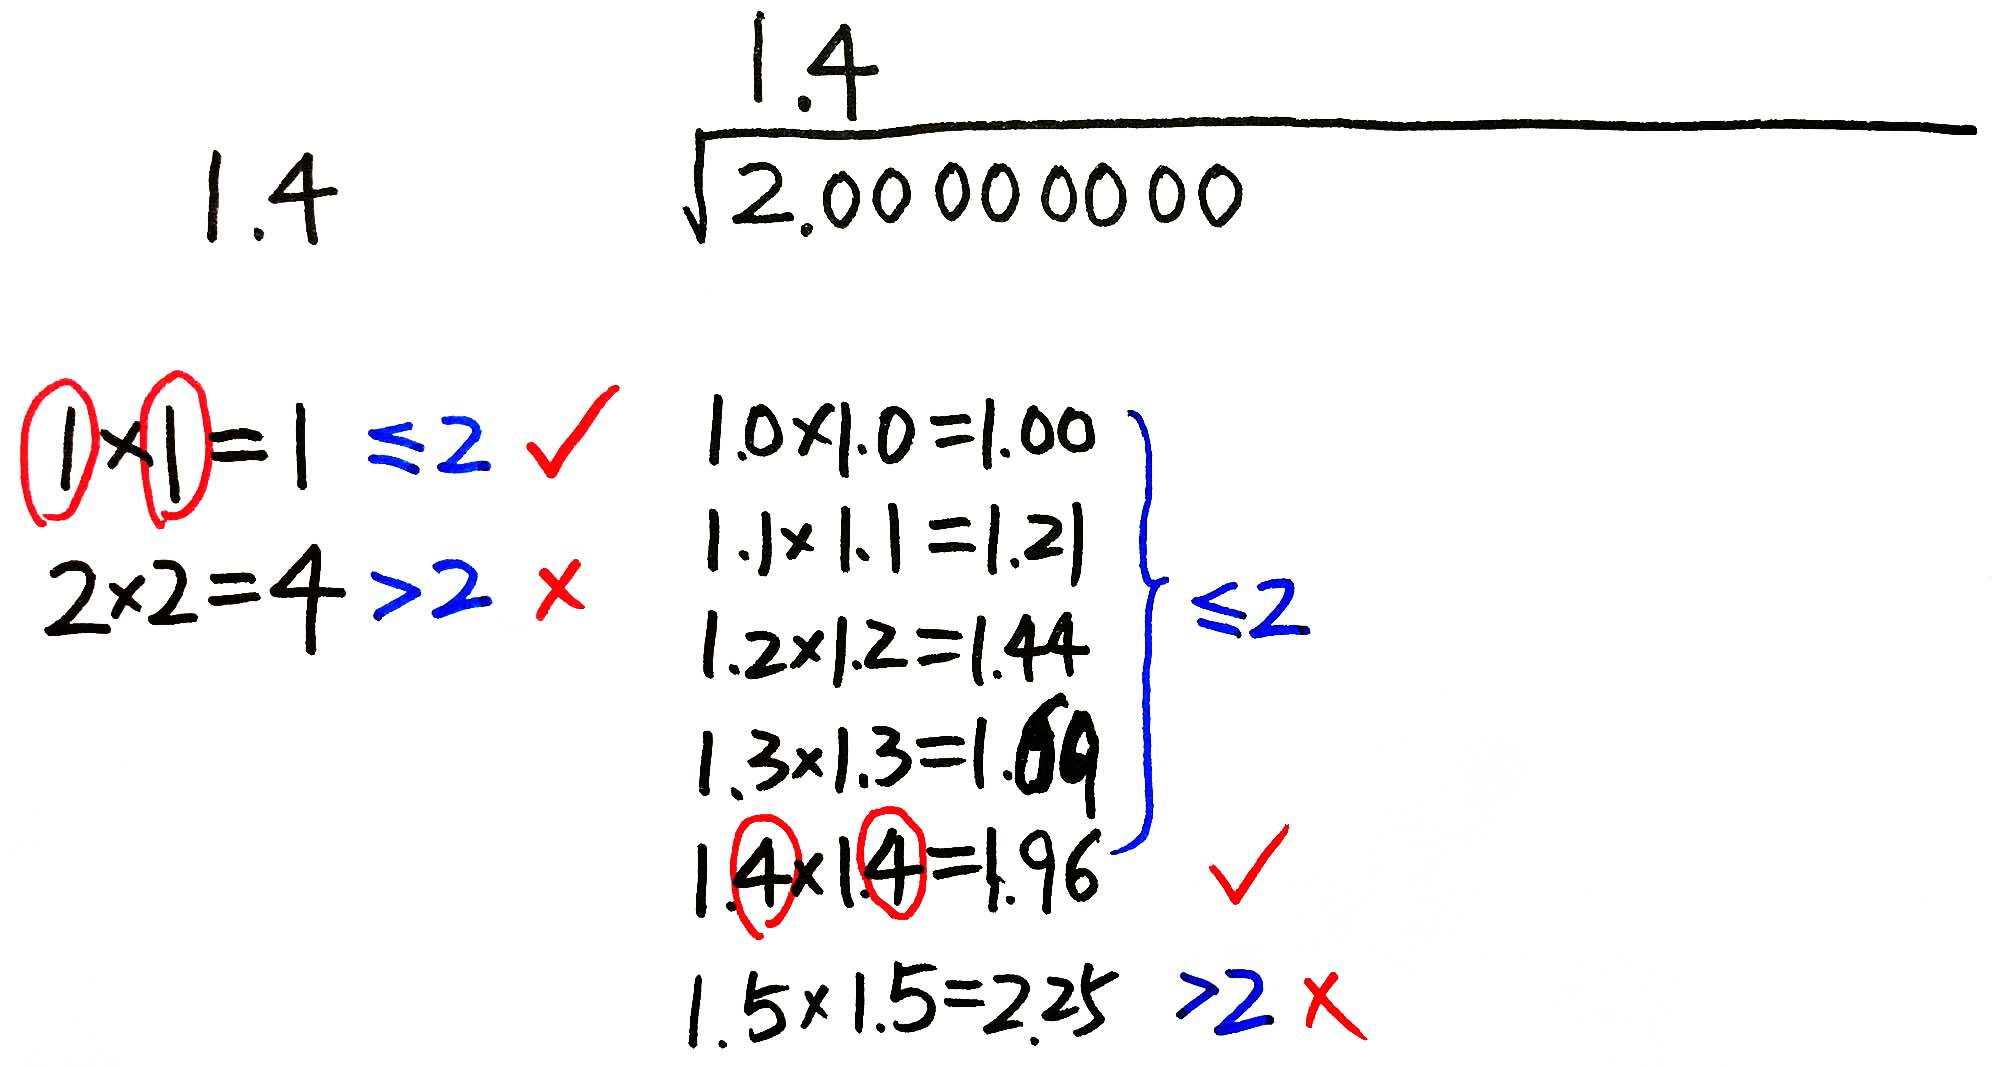 1.4
1.4 √2.00 00 00 00
1×1=1 ≤2 ✓
2×2=4 >2 ×
1.0×1.0=1.00
1.1×1.1=1.21
1.2×1.2=1.44
1.3×1.3=1.69
1.4×1.4=1.96 ✓
≤2
1.5×1.5=2.25 >2 ×